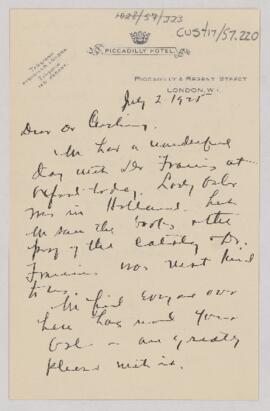 CUS417/57.220
PICCADILLY HOTEL
PICCADILLY & REGENT STREET
LONDON, W.1.
July 2 1925
Dear Dr Cushing.
We had a wonderful
day with Dr Francis at
Oxford today. Lady Osler
was in Holland. but
we saw the books & the
proof of the catalog & Dr.
Francis was most kind
to us.
We find everyone over
here has read your
Osler & are greatly
pleased with it.